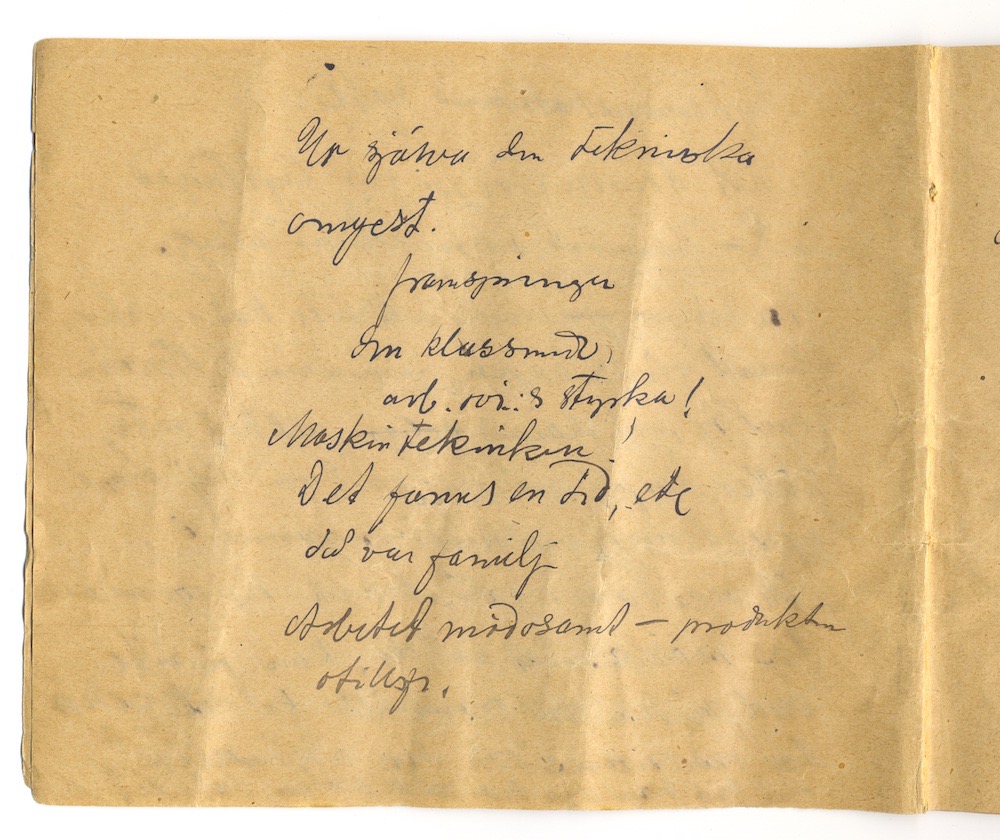 Ur själva den tekniska
omgest.
framspringer
den klassmedv,
arb. röx:s styrka!
Maskintekniken!
Det fanns en tid, etc
då var familj
Arbetet mödosamt – produkten
otillfr.